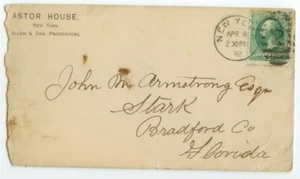 ASTOR HOUSE,
NEW YORK.
ALLEN & DAM, PROPRIETORS.
NEW YORK
APR 8
2 30 PM
82
John M. Armstrong Esqr
Stark
Bradford Co
Florida